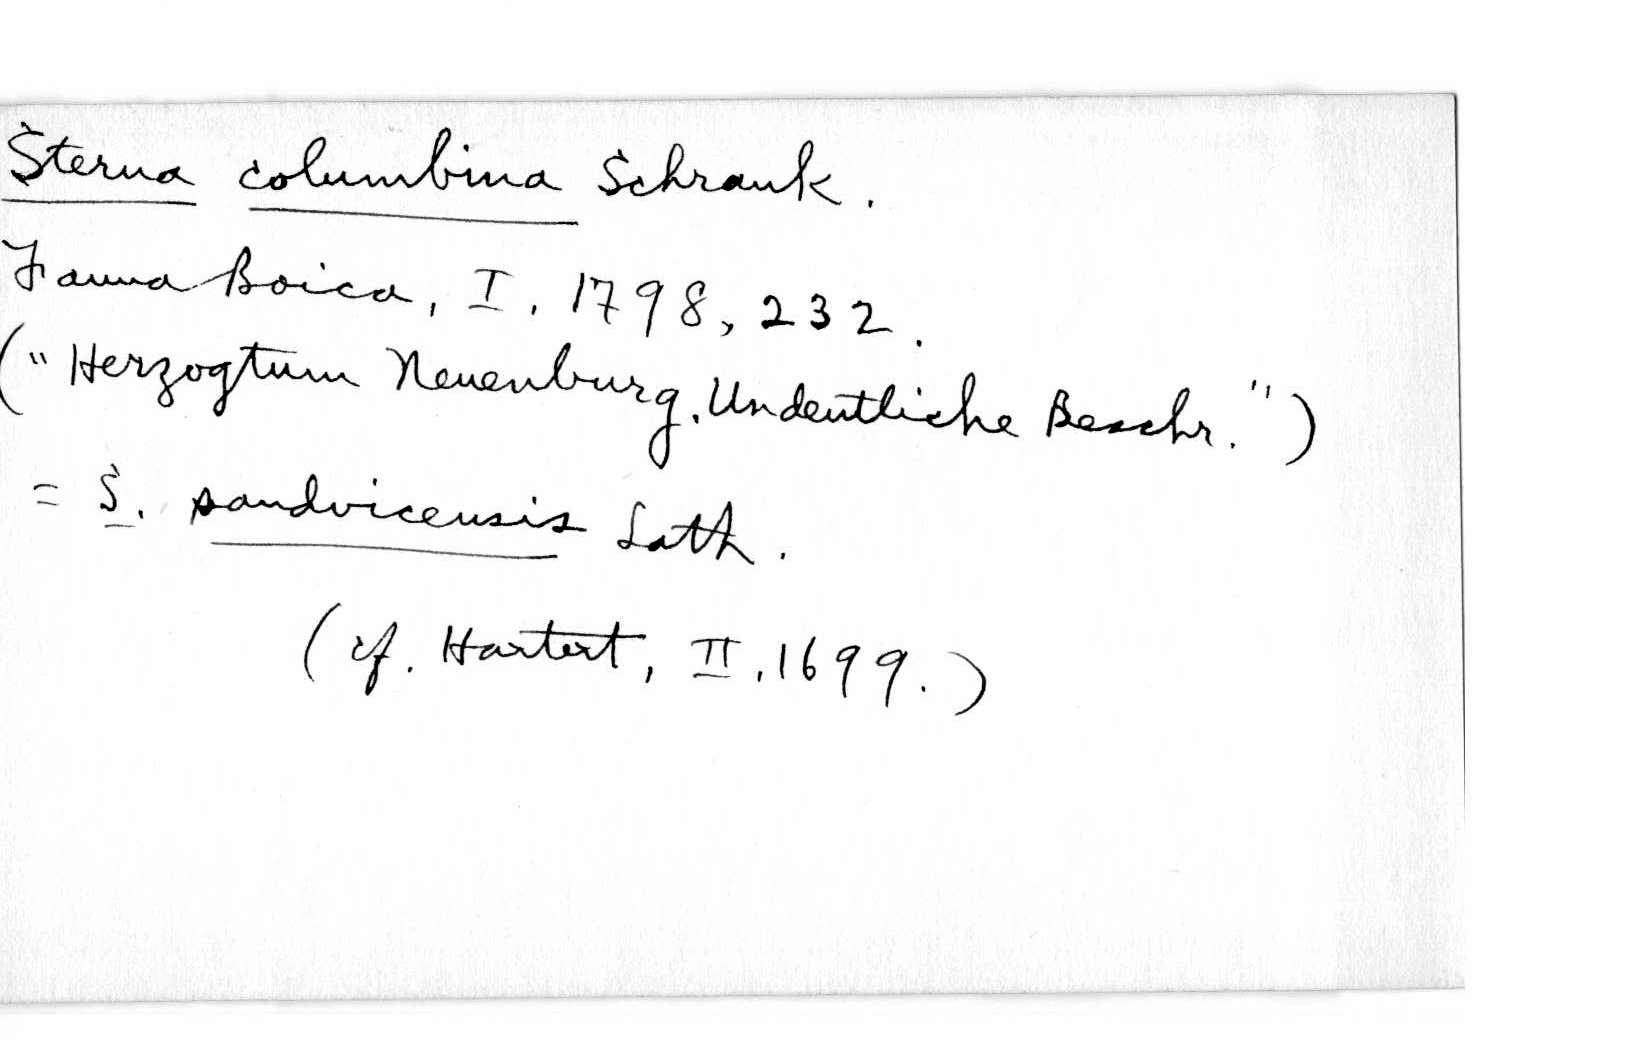 Sterna columbina Schrank.
Fauna Boica, I, 1798, 232.
("Herzogtum Neuenburg. Undeutliche Beschr.")
= S. sandvicensis Lath.
(cf. Hartert, II, 1699.)